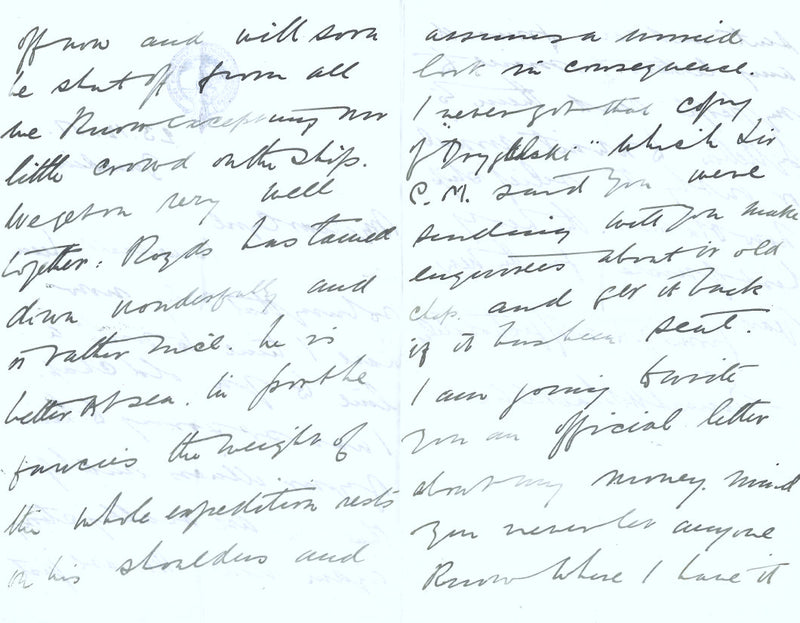 off now and will soon
be shut off from all
we know excepting our
little crowd on the ship.
We get on very well
together: Royds has tamed
down wonderfully and
is rather nice. he is
better at sea. In port he
fancies the weight of
the whole expedition rests
on his shoulders and
assumes a worried
look in consequence.
I never got that copy
of "Drygalski" which Sir
C. M. said you were
sending will you make
enquiries about it old
chap and get it back
if it has been sent.
I am going to write
you an official letter
about my money. mind
you never let anyone
know where I have it